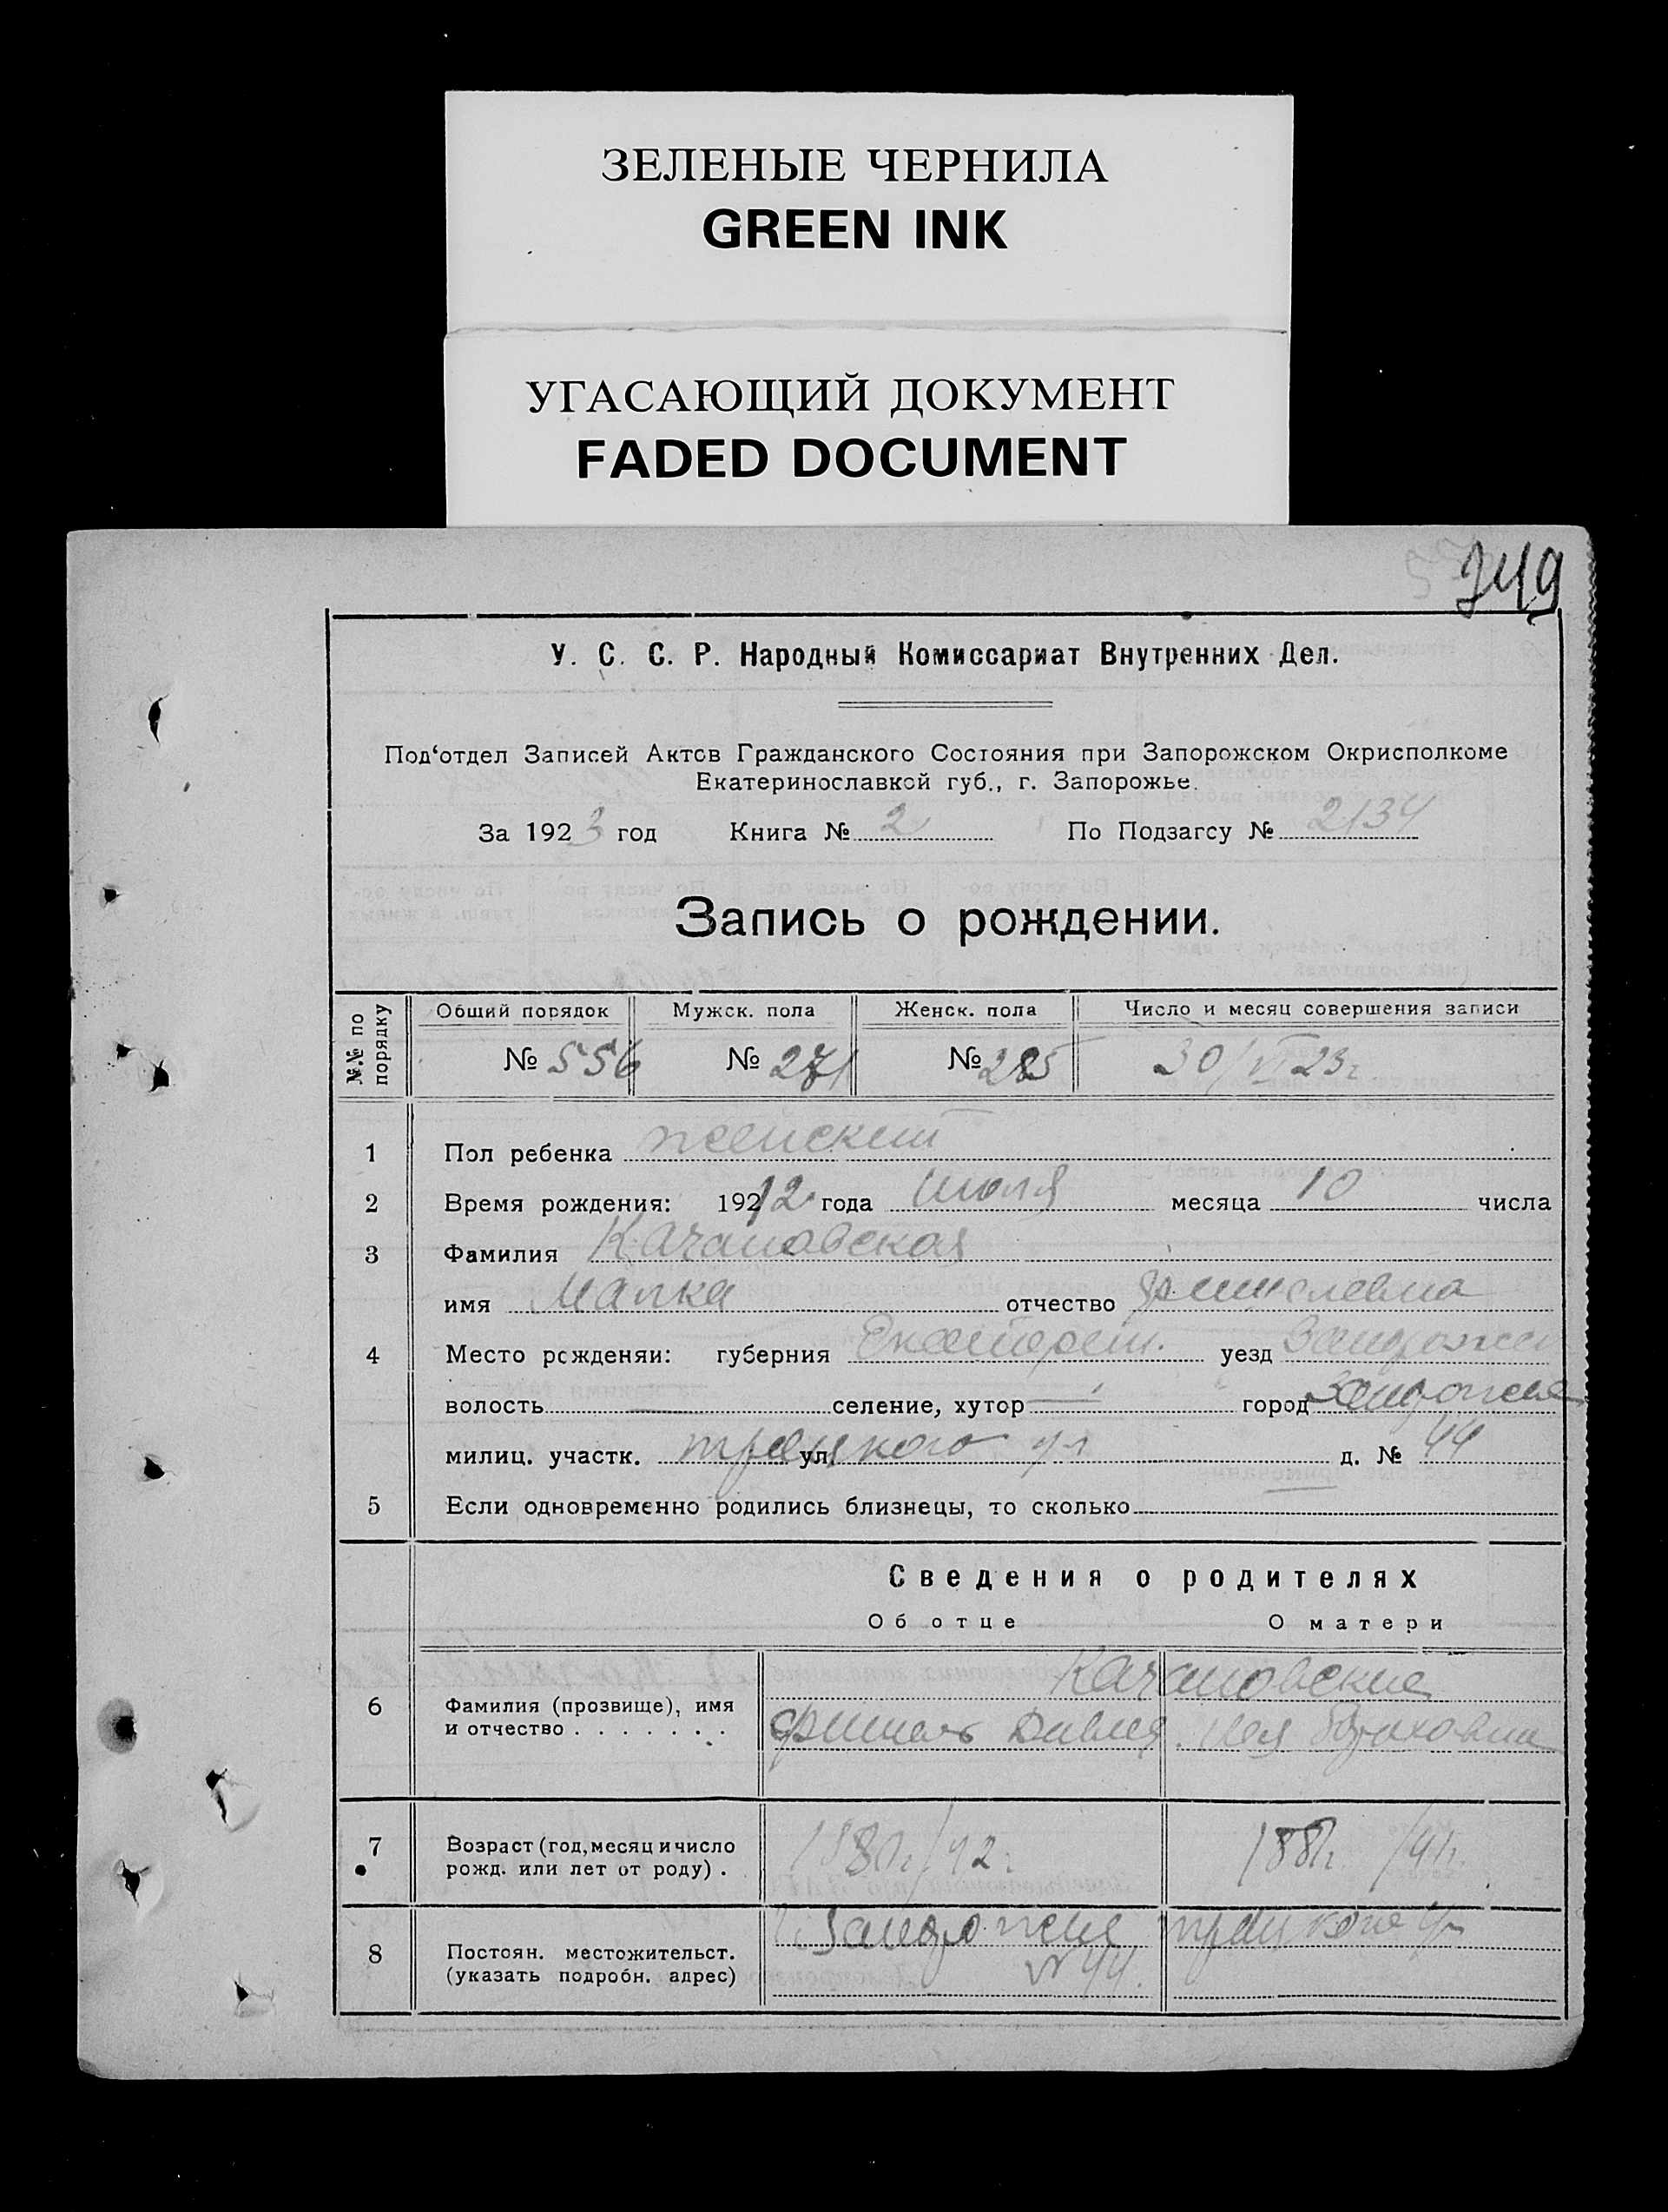 ЗЕЛЕНЫЕ ЧЕРНИЛА
GREEN INK
УГАСАЮЩИЙ ДОКУМЕНТ
FADED DOCUMENT
349
У. С. С. Р. Народный Комиссариат Внутренних Дел.
Под‘отдел Записей Актов Гражданского Состояния при Запорожском Окрисполкоме
Екатеринославкой губ., г. Запорожье.
За 1923 год Книга № 2 По Подзагсу № 2134
Запись о рождении.
№№ по порядку Общий порядок Мужск. пола Женск. пола Число и месяц совершения записи
№ 556 № 271 № 285 30/VI 23г
1 Пол ребенка женский
2 Время рождения: 19212 года июля месяца 10 числа
3 Фамилия Качановская
имя Малка отчество
4 Место рожденяи: губерния Екатерин. уезд Запорож
волость селение, хутор город Запорожье
милиц. участк. ул. Троцкого ул д. № 44
5 Если одновременно родились близнецы, то сколько
Сведения о родителях
Об отце О матери
Качановские
6 Фамилия (прозвище), имя
и отчество . . . . . . . Фишель Давид.
7 Возраст (год, месяц и число
рожд. или лет от роду) . 1881г/42г 1881г. /41г.
8 Постоян. местожительст. Запорожье Троцкого ул
(указать подробн. адрес) № 44.